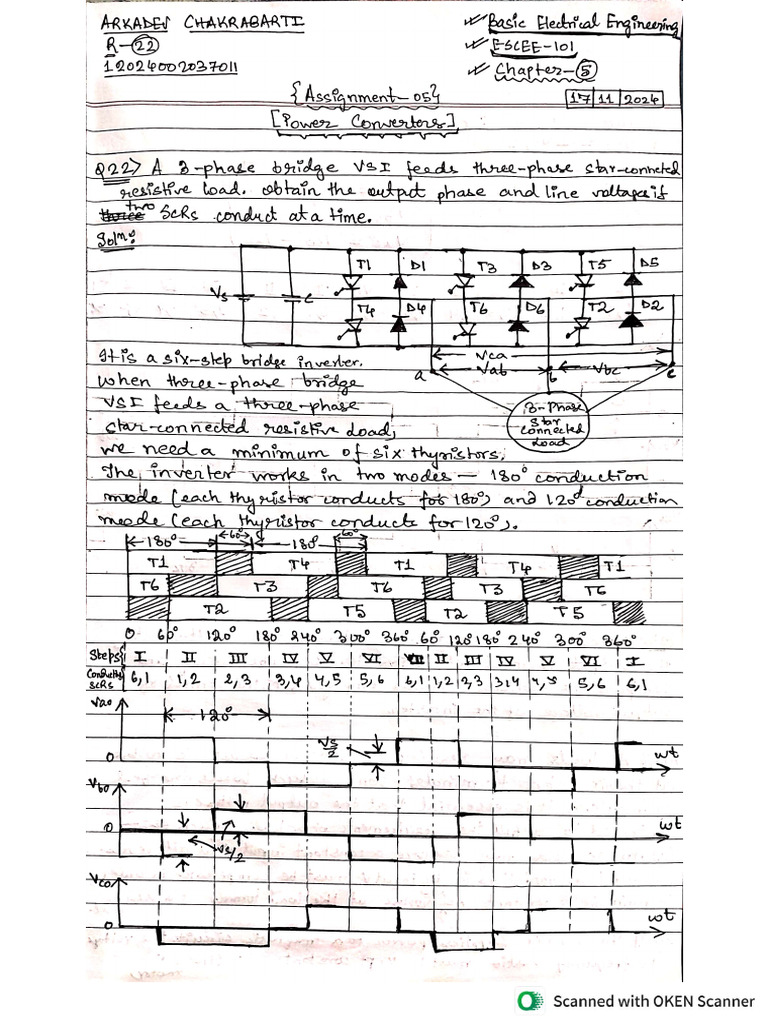 ARKADEV CHAKRABARTI
Basic Electrical Engineering
R-22
ESCEE-101
12024002037011
Chapter-5
{Assignment-05}
17 11 2024
[Power Convertors]
Q22> A 3-phase bridge VSI feeds three-phase star-connected
resistive load. obtain the output phase and line voltages if
two SCRs conduct at a time.
Solⁿ:
T1 D1 T3 D3 T5 D5
Vs C
T4 D4 T6 D6 T2 D2
Vca
Vab Vbc
a b c
3-Phase
star
connected
Load
It is a six-step bridge inverter.
When three-phase bridge
VSI feeds a three-phase
star-connected resistive load,
we need a minimum of six thyristors.
The inverter works in two modes — 180° conduction
mode (each thyristor conducts for 180°) and 120° conduction
mode (each thyristor conducts for 120°).
180° 60° 180° 60°
T1 T4 T1 T4 T1
T6 T3 T6 T3 T6
T2 T5 T2 T5
0 60° 120° 180° 240° 300° 360° 60° 120° 180° 240° 300° 360°
Steps I II III IV V VI II III IV V VI I
Conducting SCRs 6,1 1,2 2,3 3,4 4,5 5,6 6,1 1,2 2,3 3,4 4,5 5,6 6,1
Vao
120°
Vs/2
0 wt
Vbo
0 wt
Vs/2
Vco
0 wt
Scanned with OKEN Scanner